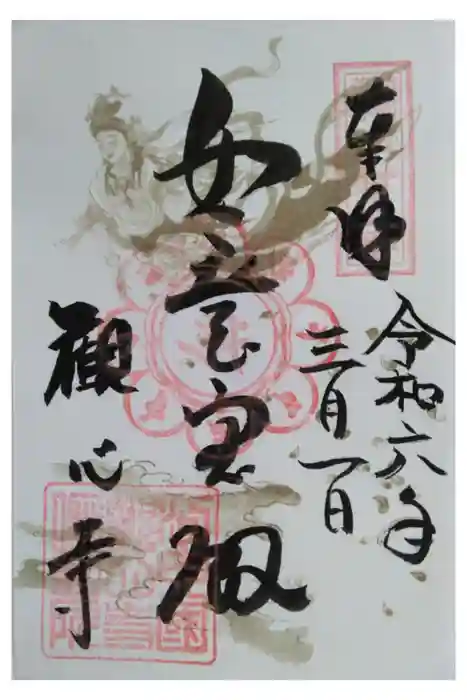 奉拝
令和六年
三月一日
如意寳殿
觀心寺